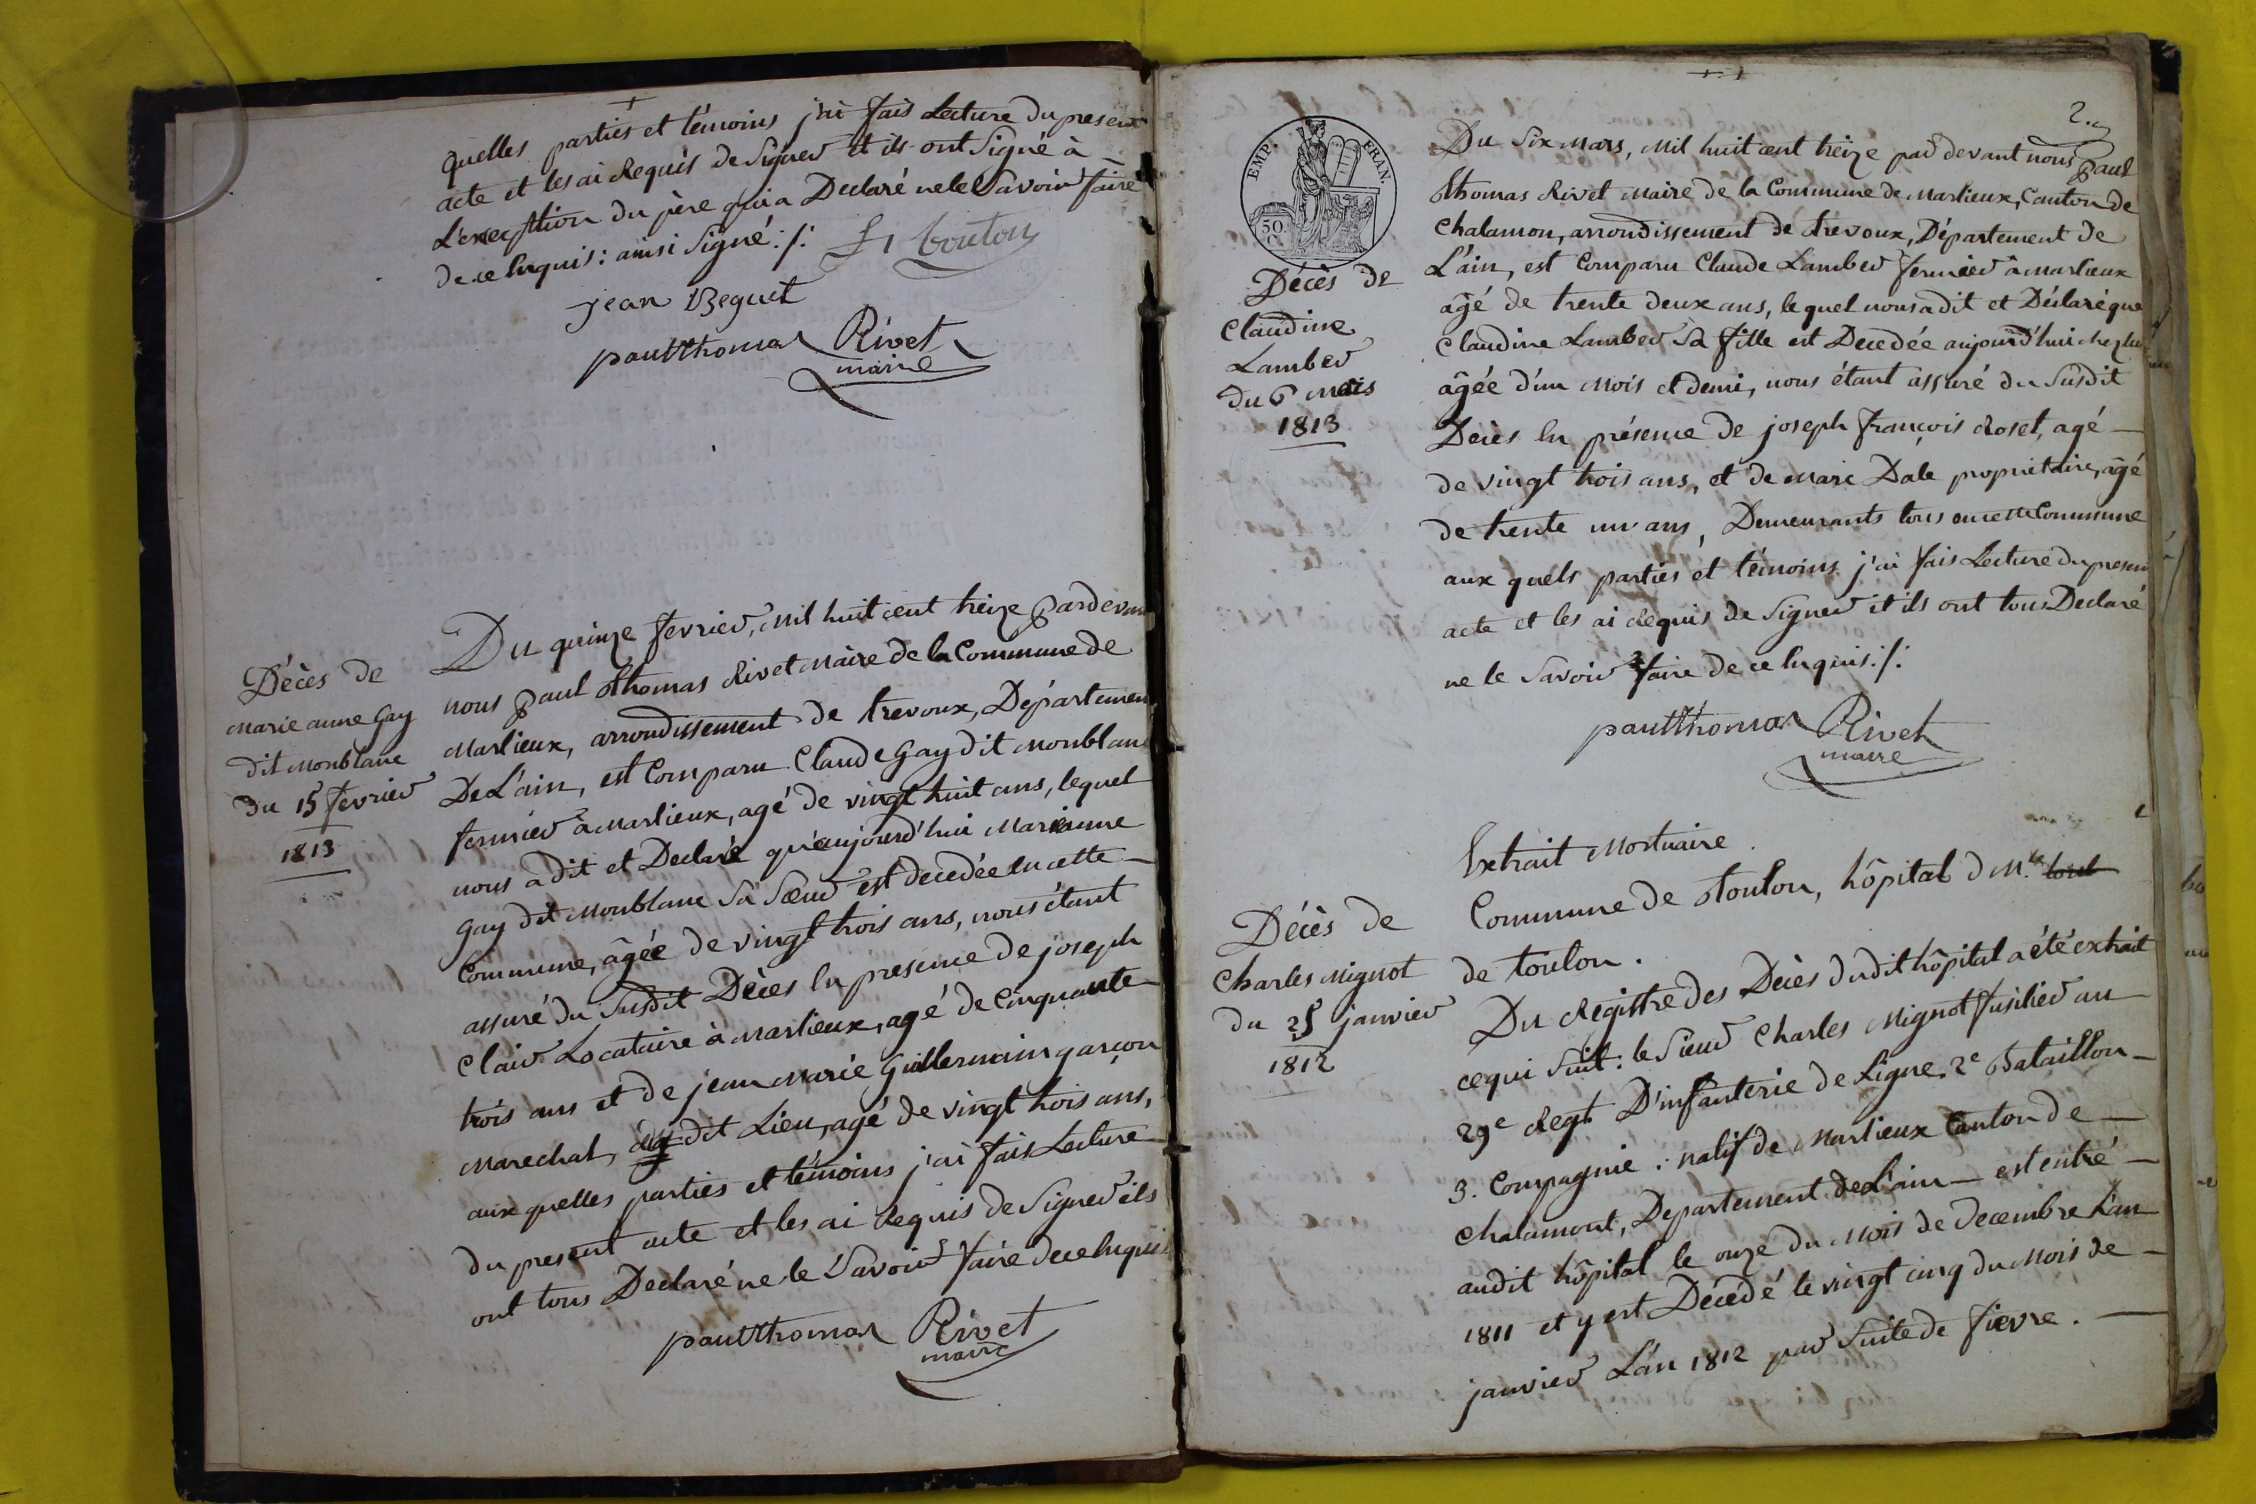 quelles parties et témoins j'ai fais Lecture du present
acte et les ai Requis de Signer et ils ont Signé à
L'exception du père qui a Declaré ne le Savoir faire
de ce Enquis : ainsi Signé :/:
bouton
jean Beguet
paul thomas Rivet
maire
Décès de
Marie anne Gay
dit Monblanc
du 15 fevrier
1813
Du quinze fevrier, Mil huit cent treize pardevant
nous paul Thomas Rivet Maire de la Commune de
Marlieux, arrondissement de trevoux, Département
De L'ain, est Comparu Claude Gay dit Monblanc
fermier à Marlieux, agé de vingt huit ans, lequel
nous a dit et Declaré qu'aujourd'hui Marianne
Gay dit Monblanc Sa Sœur est decedée en cette
Commune, âgée de vingt trois ans, nous étant
assuré du Susdit Dèces En presence de joseph
Clair Locataire à Marlieux, agé de Cinquante
trois ans et de jean Marie Guillermin garçon
Marechal, dudit Lieu, agé de vingt trois ans,
aux quelles parties et témoins j'ai fais Lecture
du present acte et les ai Requis de Signer ils
ont tous Declaré ne le Savoir faire de ce Enquis
paul thomas Rivet
maire
2.
EMP. FRAN.
50
C.
Décès de
Claudine
Lamber
du 6 Mars
1813
Du Six Mars, Mil huit cent treize par devant nous paul
Thomas Rivet Maire de la Commune de Marlieux, Canton de
Chalamon, arrondissement de trevoux, Département de
L'ain, est Comparu Claude Lamber fermier à Marlieux
âgé de trente deux ans, lequel nous a dit et Déclaré que
Claudine Lamber Sa fille est Decedée aujourd'hui chez lui
âgée d'un Mois et demi, nous étant assuré du Susdit
Décès En présence de joseph françois Roset, agé
de vingt trois ans, et de Marc Dale propriétaire, âgé
de trente un ans, Demeurants tous en cette Commune
aux quels parties et témoins j'ai fais Lecture du present
acte et les ai Requis de Signer et ils ont tous Declaré
ne le Savoir faire de ce Enquis :/:
paul thomas Rivet
maire
Extrait Mortuaire.
Décès de
Charles Mignot
du 25 janvier
1812
Commune de Toulon, hôpital D M.re
de toulon.
Du Registre des Décès dudit hôpital a été extrait
ce qui Suit : le Sieur Charles Mignot fusilier au
29e Regt D'infanterie de Ligne. 2e Bataillon
3. Compagnie : natif de Marlieux Canton de
Chalamont, Departement de L'ain est entré
audit hôpital le onze du Mois de Decembre L'an
1811 et y est Décedé le vingt cinq du Mois de
janvier L'an 1812 par Suite de fievre.